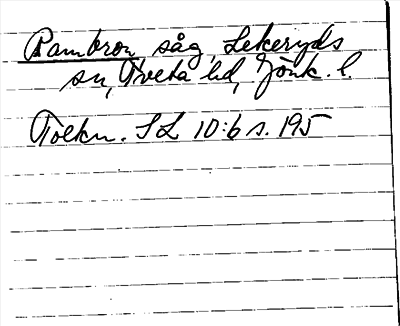 Rambron såg, Lekeryds
sn, Tveta hd, Jönk. l.
Tolkn. SL 10:6 s. 195